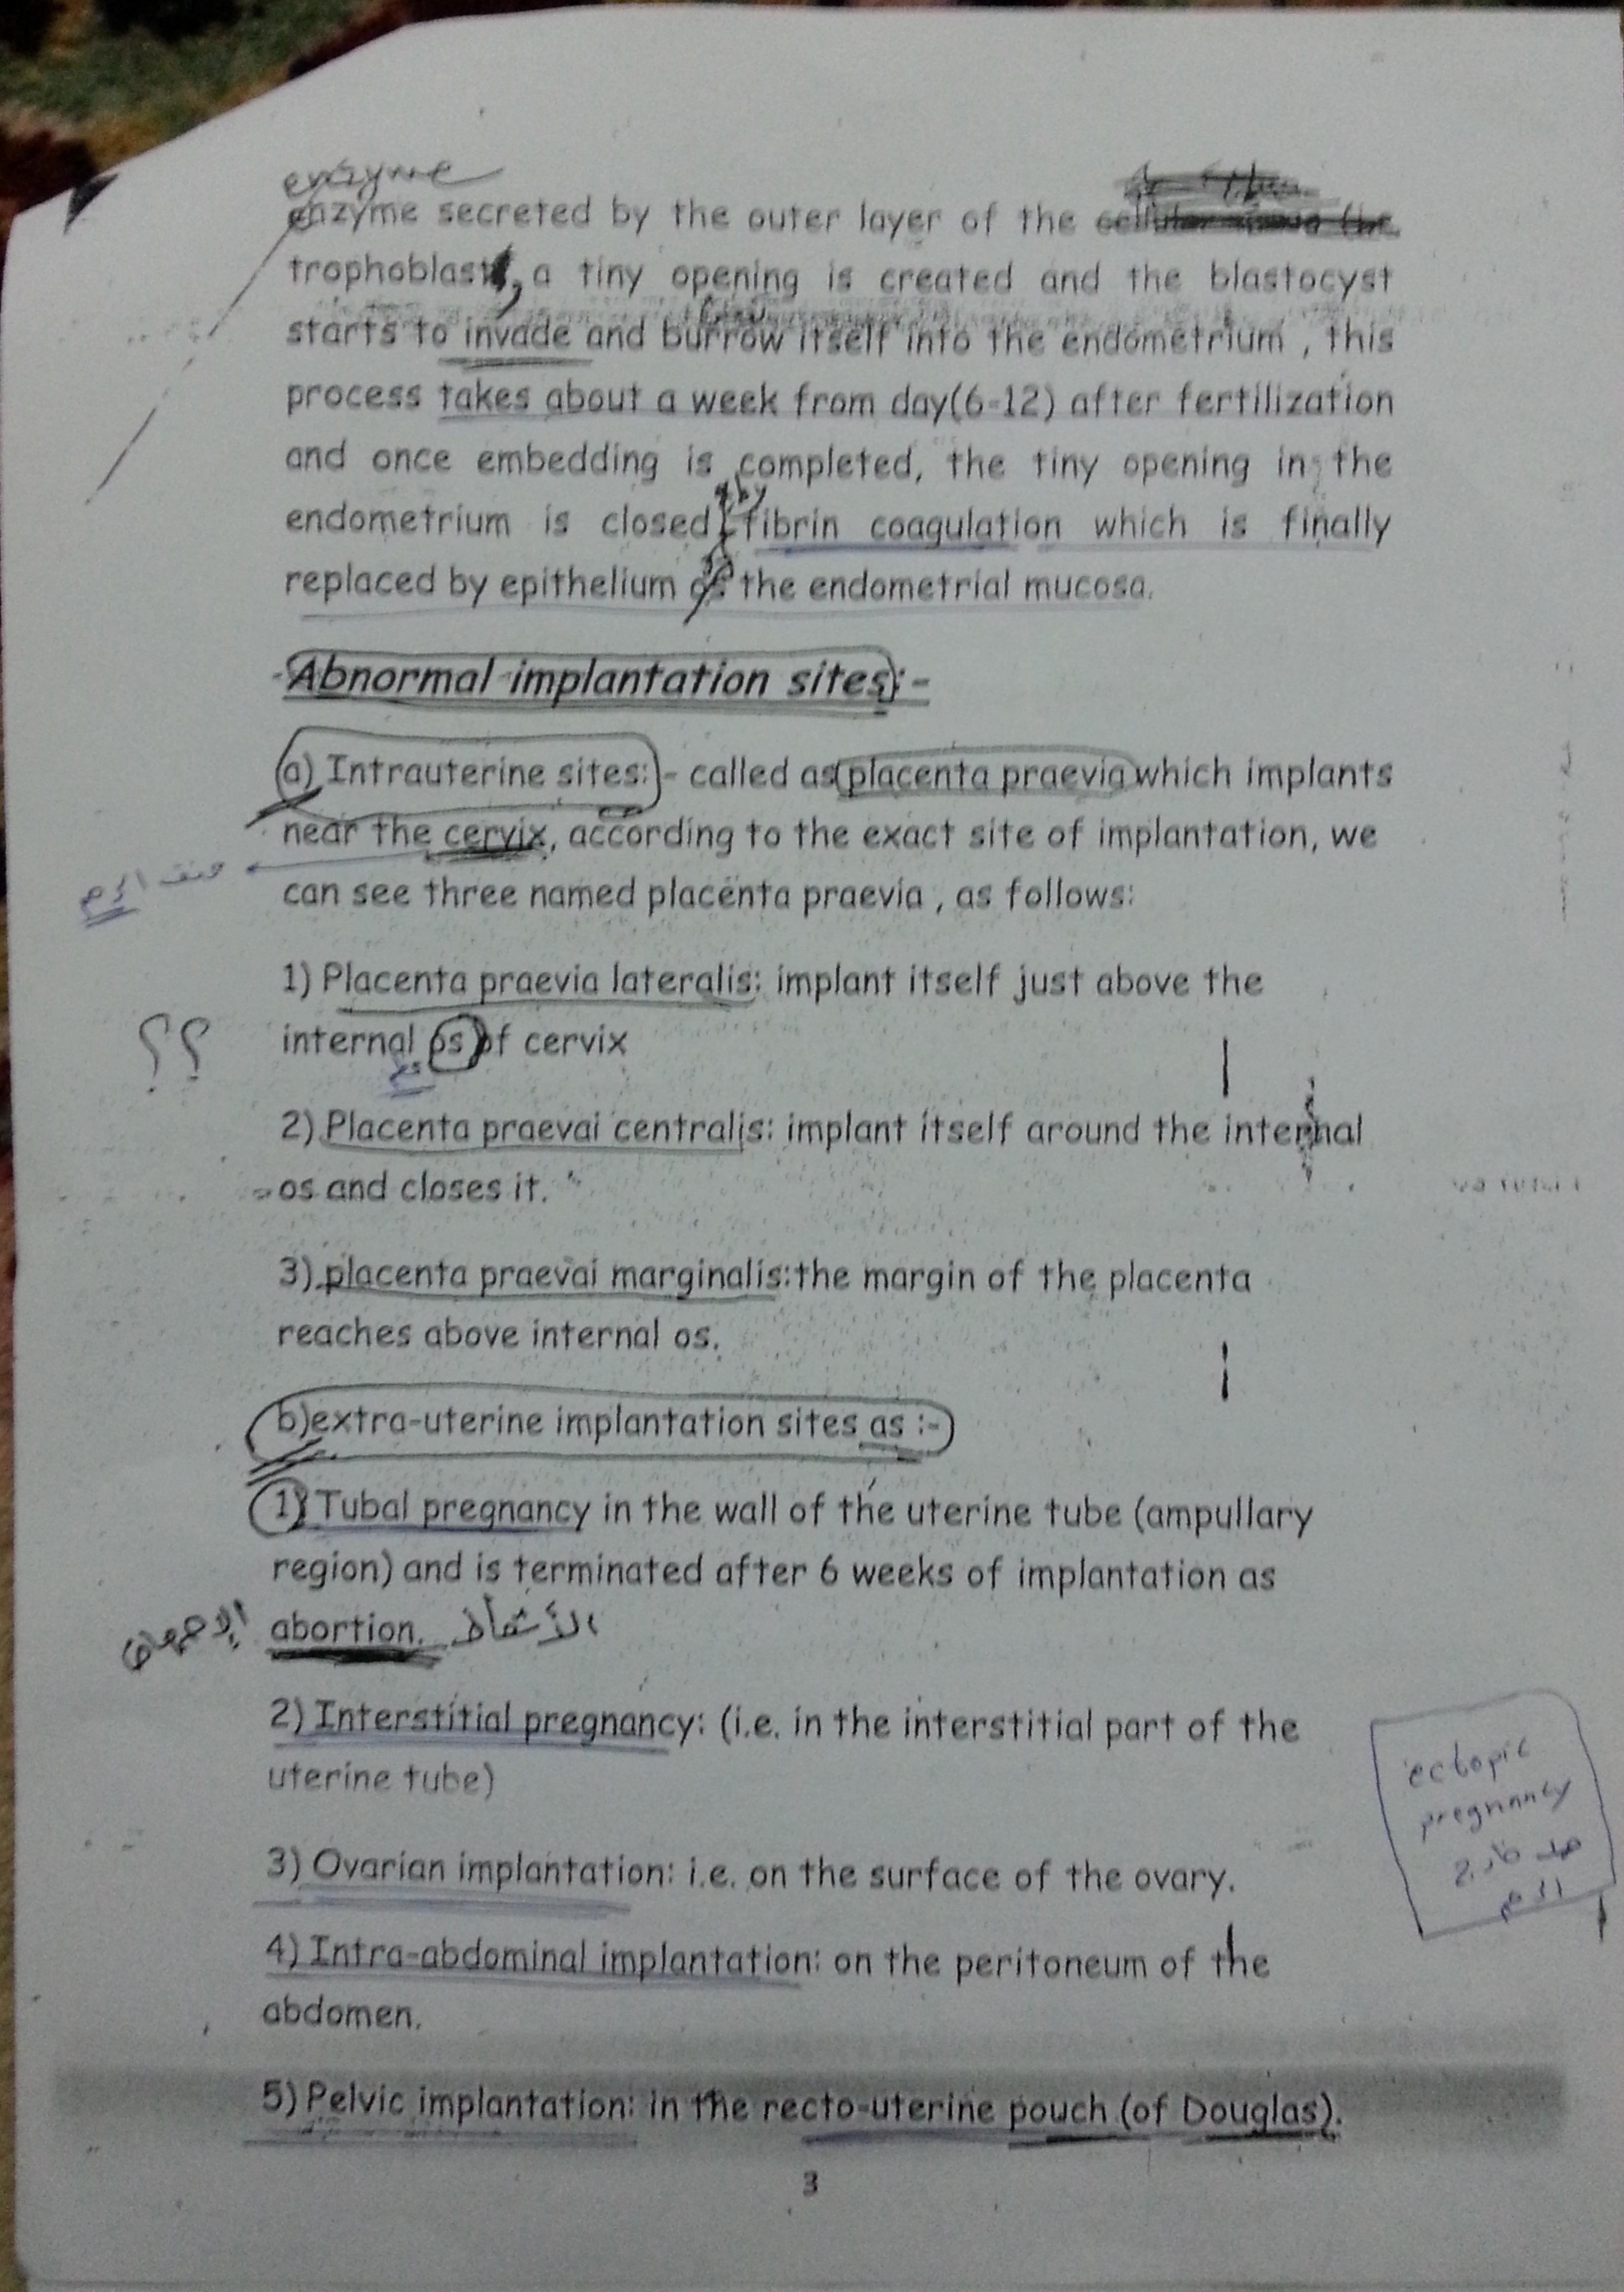 enzyme
enzyme secreted by the outer layer of the
trophoblast, a tiny opening is created and the blastocyst
starts to invade and burrow itself into the endometrium , this
process takes about a week from day(6-12) after fertilization
and once embedding is completed, the tiny opening in the
endometrium is closed by fibrin coagulation which is finally
replaced by epithelium of the endometrial mucosa.
-Abnormal implantation sites:-
a) Intrauterine sites:- called as placenta praevia which implants
near the cervix, according to the exact site of implantation, we
عنق الرحم
can see three named placenta praevia , as follows:
1) Placenta praevia lateralis: implant itself just above the
؟؟
internal os of cervix
فم
2) Placenta praevai centralis: implant itself around the internal
os and closes it.
3) placenta praevai marginalis:the margin of the placenta
reaches above internal os.
b)extra-uterine implantation sites as :-
1) Tubal pregnancy in the wall of the uterine tube (ampullary
region) and is terminated after 6 weeks of implantation as
abortion.
الإجهاض
2) Interstitial pregnancy: (i.e. in the interstitial part of the
uterine tube)
ectopic
pregnancy
الرحم
3) Ovarian implantation: i.e. on the surface of the ovary.
4) Intra-abdominal implantation: on the peritoneum of the
abdomen.
5) Pelvic implantation: in the recto-uterine pouch (of Douglas).
3